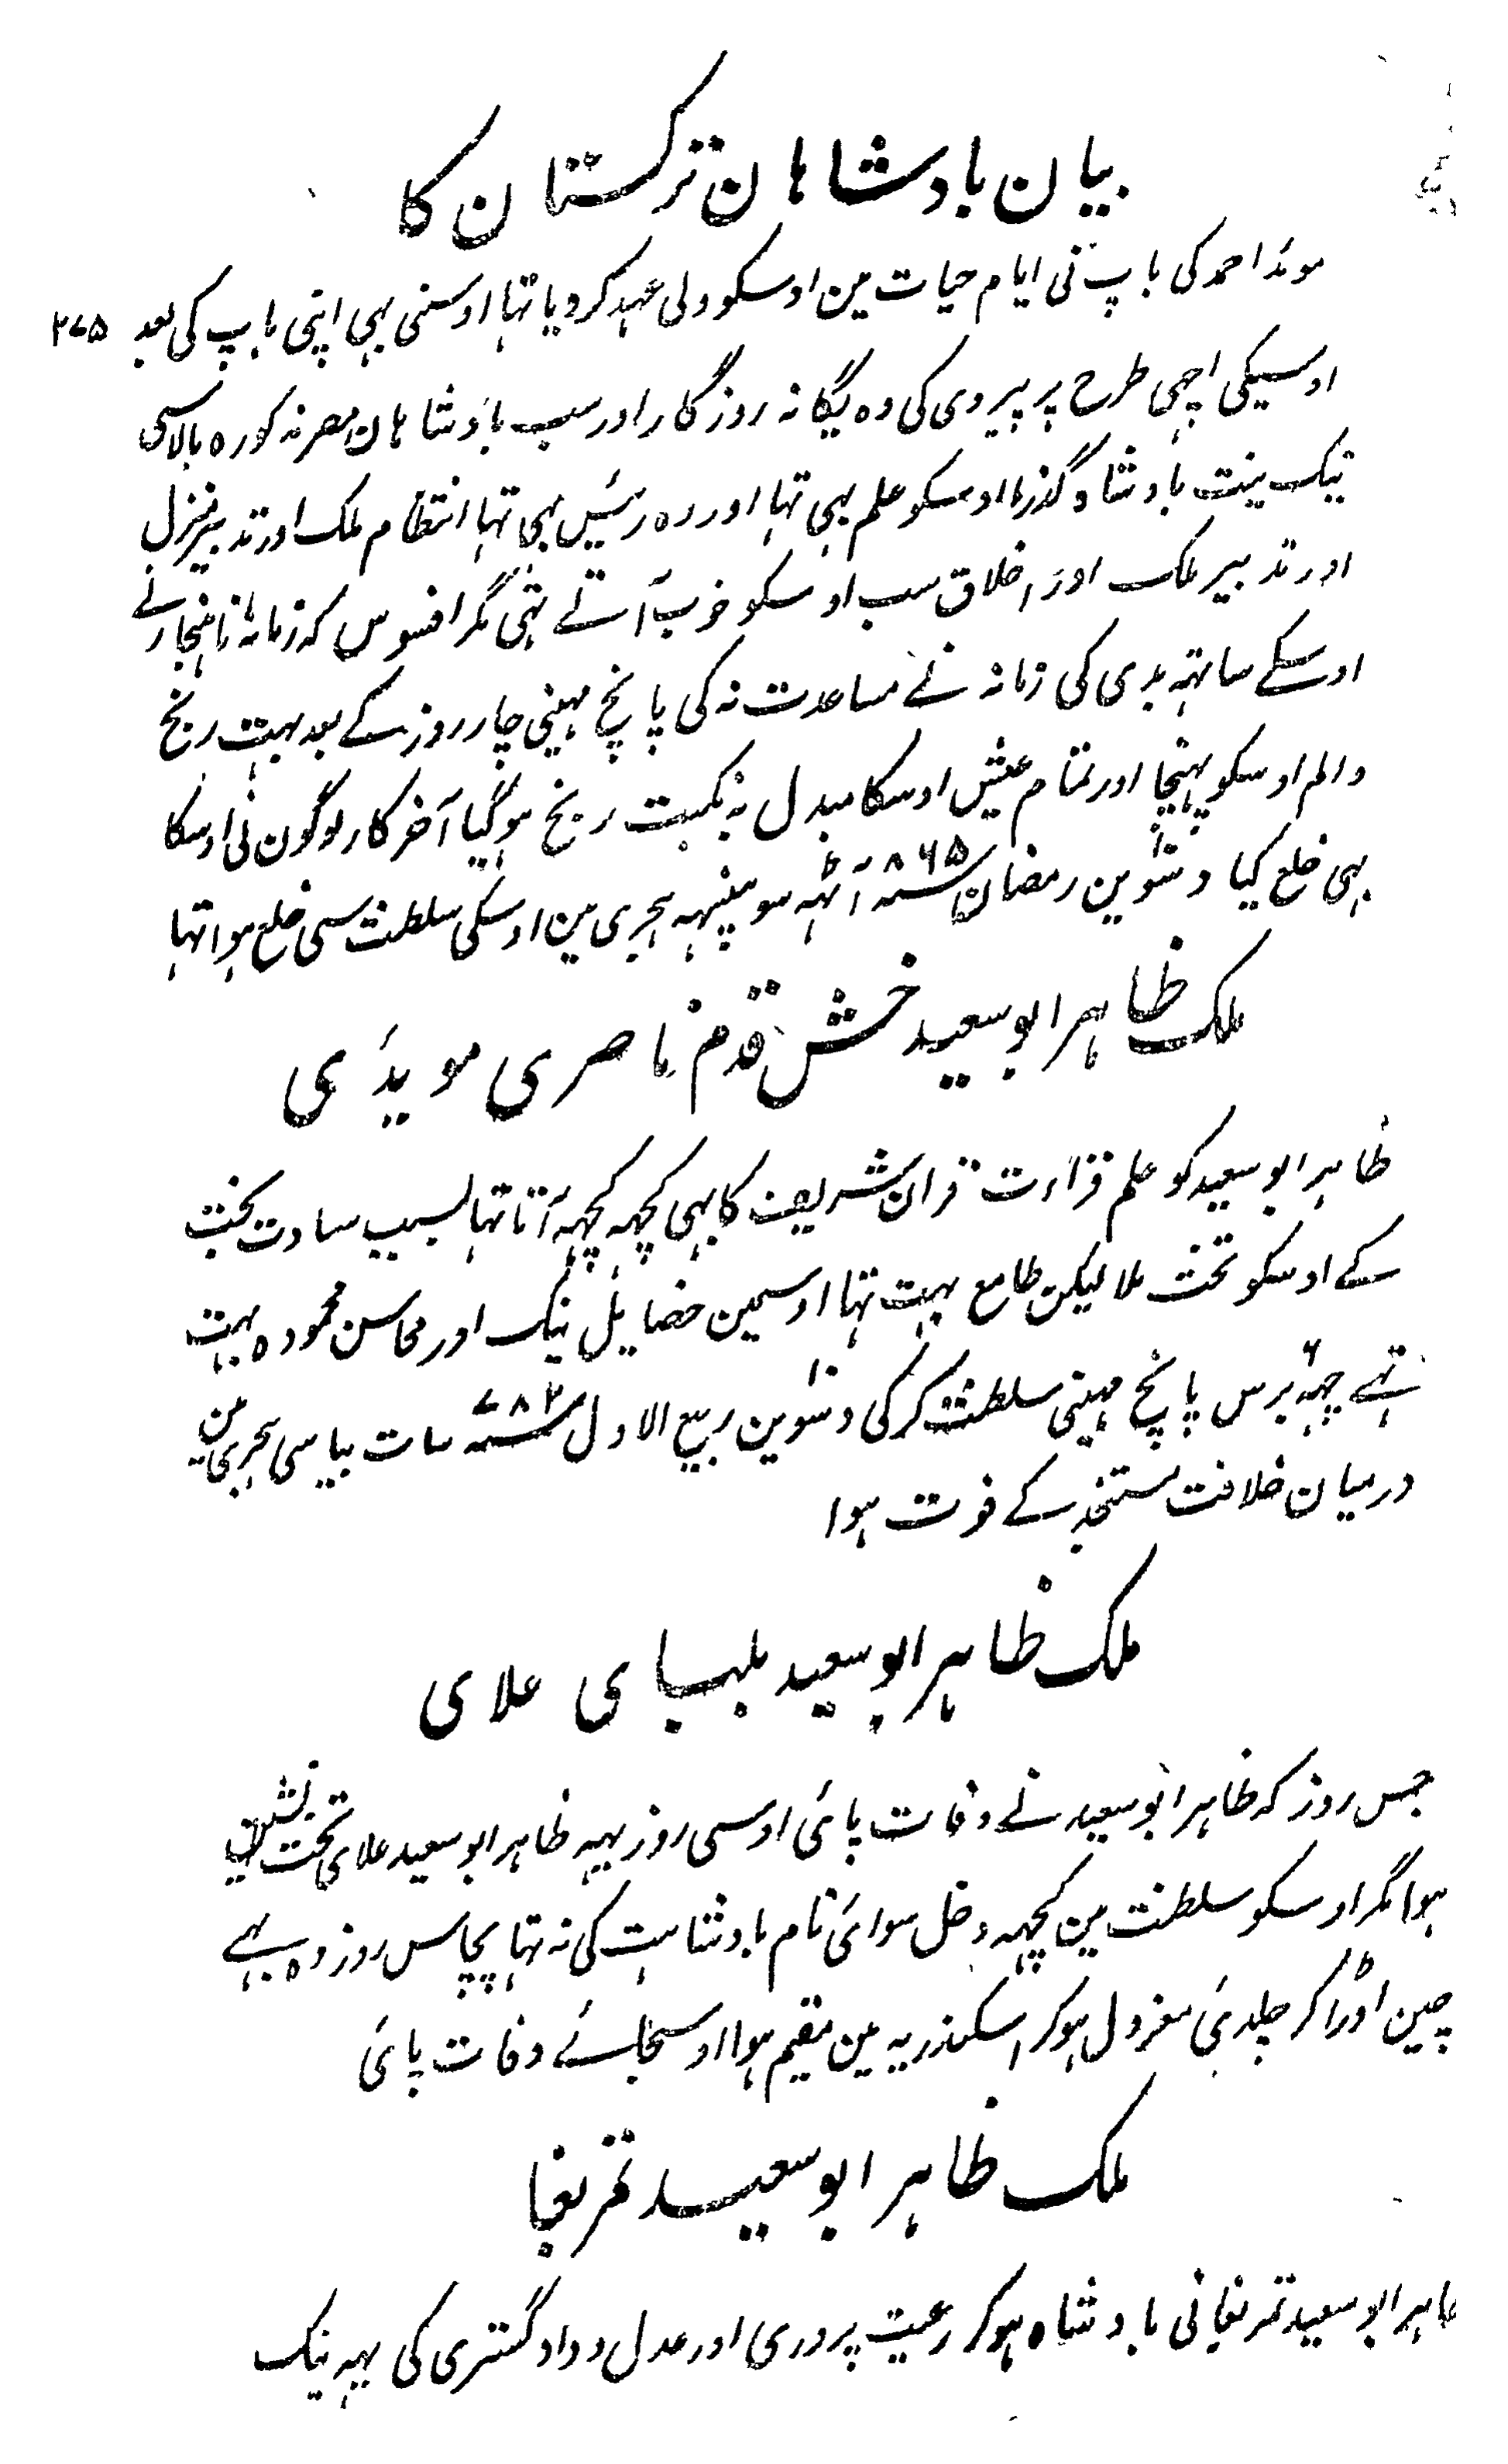 بیان بادشاہان ترکستان کا
موئد احمد کی باپ نی ایام حیات مین اوسکو ولی عہد کر دیا تہا اوسنی بہی اپنی باپ کی بعد ۲۷۵
اوسیکی اچہی طرح پر پیروی کی وہ یگانہ روزگار اور سب بادشاہان مصر مذکورہ بالا سی
نیک نیت بادشاہ گذرا اوسکو علم بہی تہا اور وہ رئیس بہی تہا انتظام ملک اور تدبیر منزل
اور تدبیر ملک اور اخلاق سب اوسکو خوب آتے تہی مگر افسوس کہ زمانہ ناہنجار نے
اوسکے ساتہہ بدی کی زمانہ نے مساعدت نہ کی پانچ مہینی چار روز کے بعد بہت رنج
والم اوسکو پہنچا اور تمام عیش اوسکا مبدل بہ نکبت رنج ہوگیا آخر کار لوگون نی اوسکا
بہی خلع کیا دسوین رمضان سنہ ۸۶۵ آٹہہ سو پینسہہ ہجری مین اوسکی سلطنت سی خلع ہوا تہا
ملک ظاہر ابو سعید خش قدم ناصری مویدی
ظاہر ابو سعید کو علم قراءت قران شریف کا بہی کچہہ کچہہ آتا تہا بسبب سعادت بخت
کے اوسکو تخت ملا لیکن طامع بہت تہا اوسمین خصایل نیک اور محاسن محمودہ بہت
تہے چہہ ۶ برس پانچ مہینی سلطنت کر کی دسوین ۱۰ ربیع الاول سنہ ۷۸۲ سات بیاسی ہجری مین
درمیان خلافت مستنجد کے فوت ہوا
ملک ظاہر ابو سعید بلبای علای
جس روز کہ ظاہر ابو سعید نے وفات پائی اوسی روز یہہ ظاہر ابو سعید علای تخت نشین
ہوا مگر اوسکو سلطنت مین کچہہ دخل سوائی نام بادشاہت کی نہ تہا پچاس روز وہ بہے
چین اوڑا کر جلدی معزول ہوکر اسکندریہ مین مقیم ہوا اوسجائے وفات پائی
ملک ظاہر ابو سعید تمربغا
ظاہر ابو سعید تمربغا نی بادشاہ ہوکر رعیت پروری اور عدل و داد گستری کی یہہ نیک